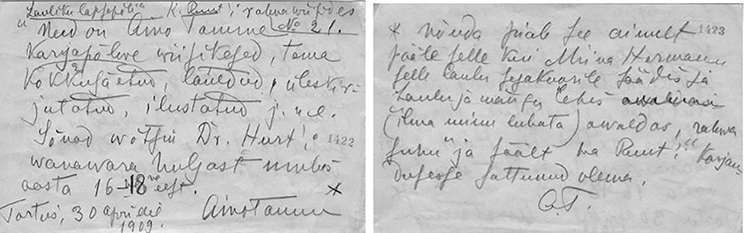 "Lauliku lapsepõli" K. Ruut'i rahwawiisides
Need on Aino Tamme No 21.
Karjapõlwe wiisikesed, tema
kokkuseatud, lauldud, üleskir
jutatud, ilustatud j. n. e.
Sõnad wõtsin Dr. Hurt'i 1422
wanawara hulgast umbes
aasta 16 18 eest.
Tartus, 30 aprillil 1909. Aino Tamm x
x nõnda jääb see ainult 1423
pääle selle kui Miina Hermann
selle laulu segakoorile säädis ja
Laulu ja mängu lehes
(ilma minu lubata) awaldas, rahwa
suhu ja säält ka Ruut'i "karjan
dusesse sattunud olema.
A. T.